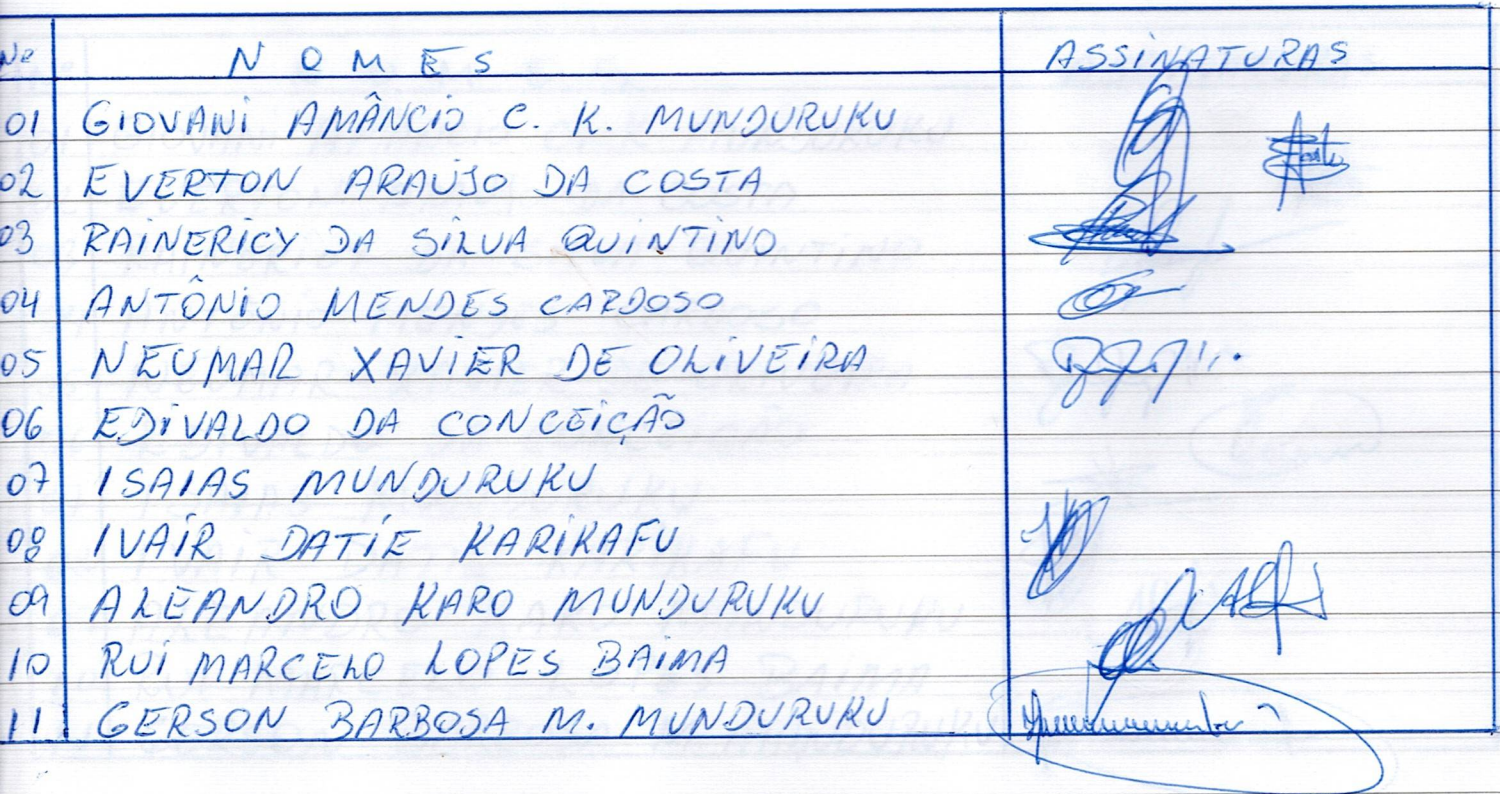 Nº N O M E S ASSINATURAS
01 GIOVANI AMÂNCIO C. K. MUNDURUKU
02 EVERTON ARAUJO DA COSTA
03 RAINERICY DA SILVA QUINTINO
04 ANTÔNIO MENDES CARDOSO
05 NEUMAR XAVIER DE OLIVEIRA
06 EDIVALDO DA CONCEIÇÃO
07 ISAIAS MUNDURUKU
08 IVAIR DATIE KARIKAFU
09 ALEANDRO KARO MUNDURUKU
10 RUI MARCELO LOPES BAIMA
11 GERSON BARBOSA M. MUNDURUKU